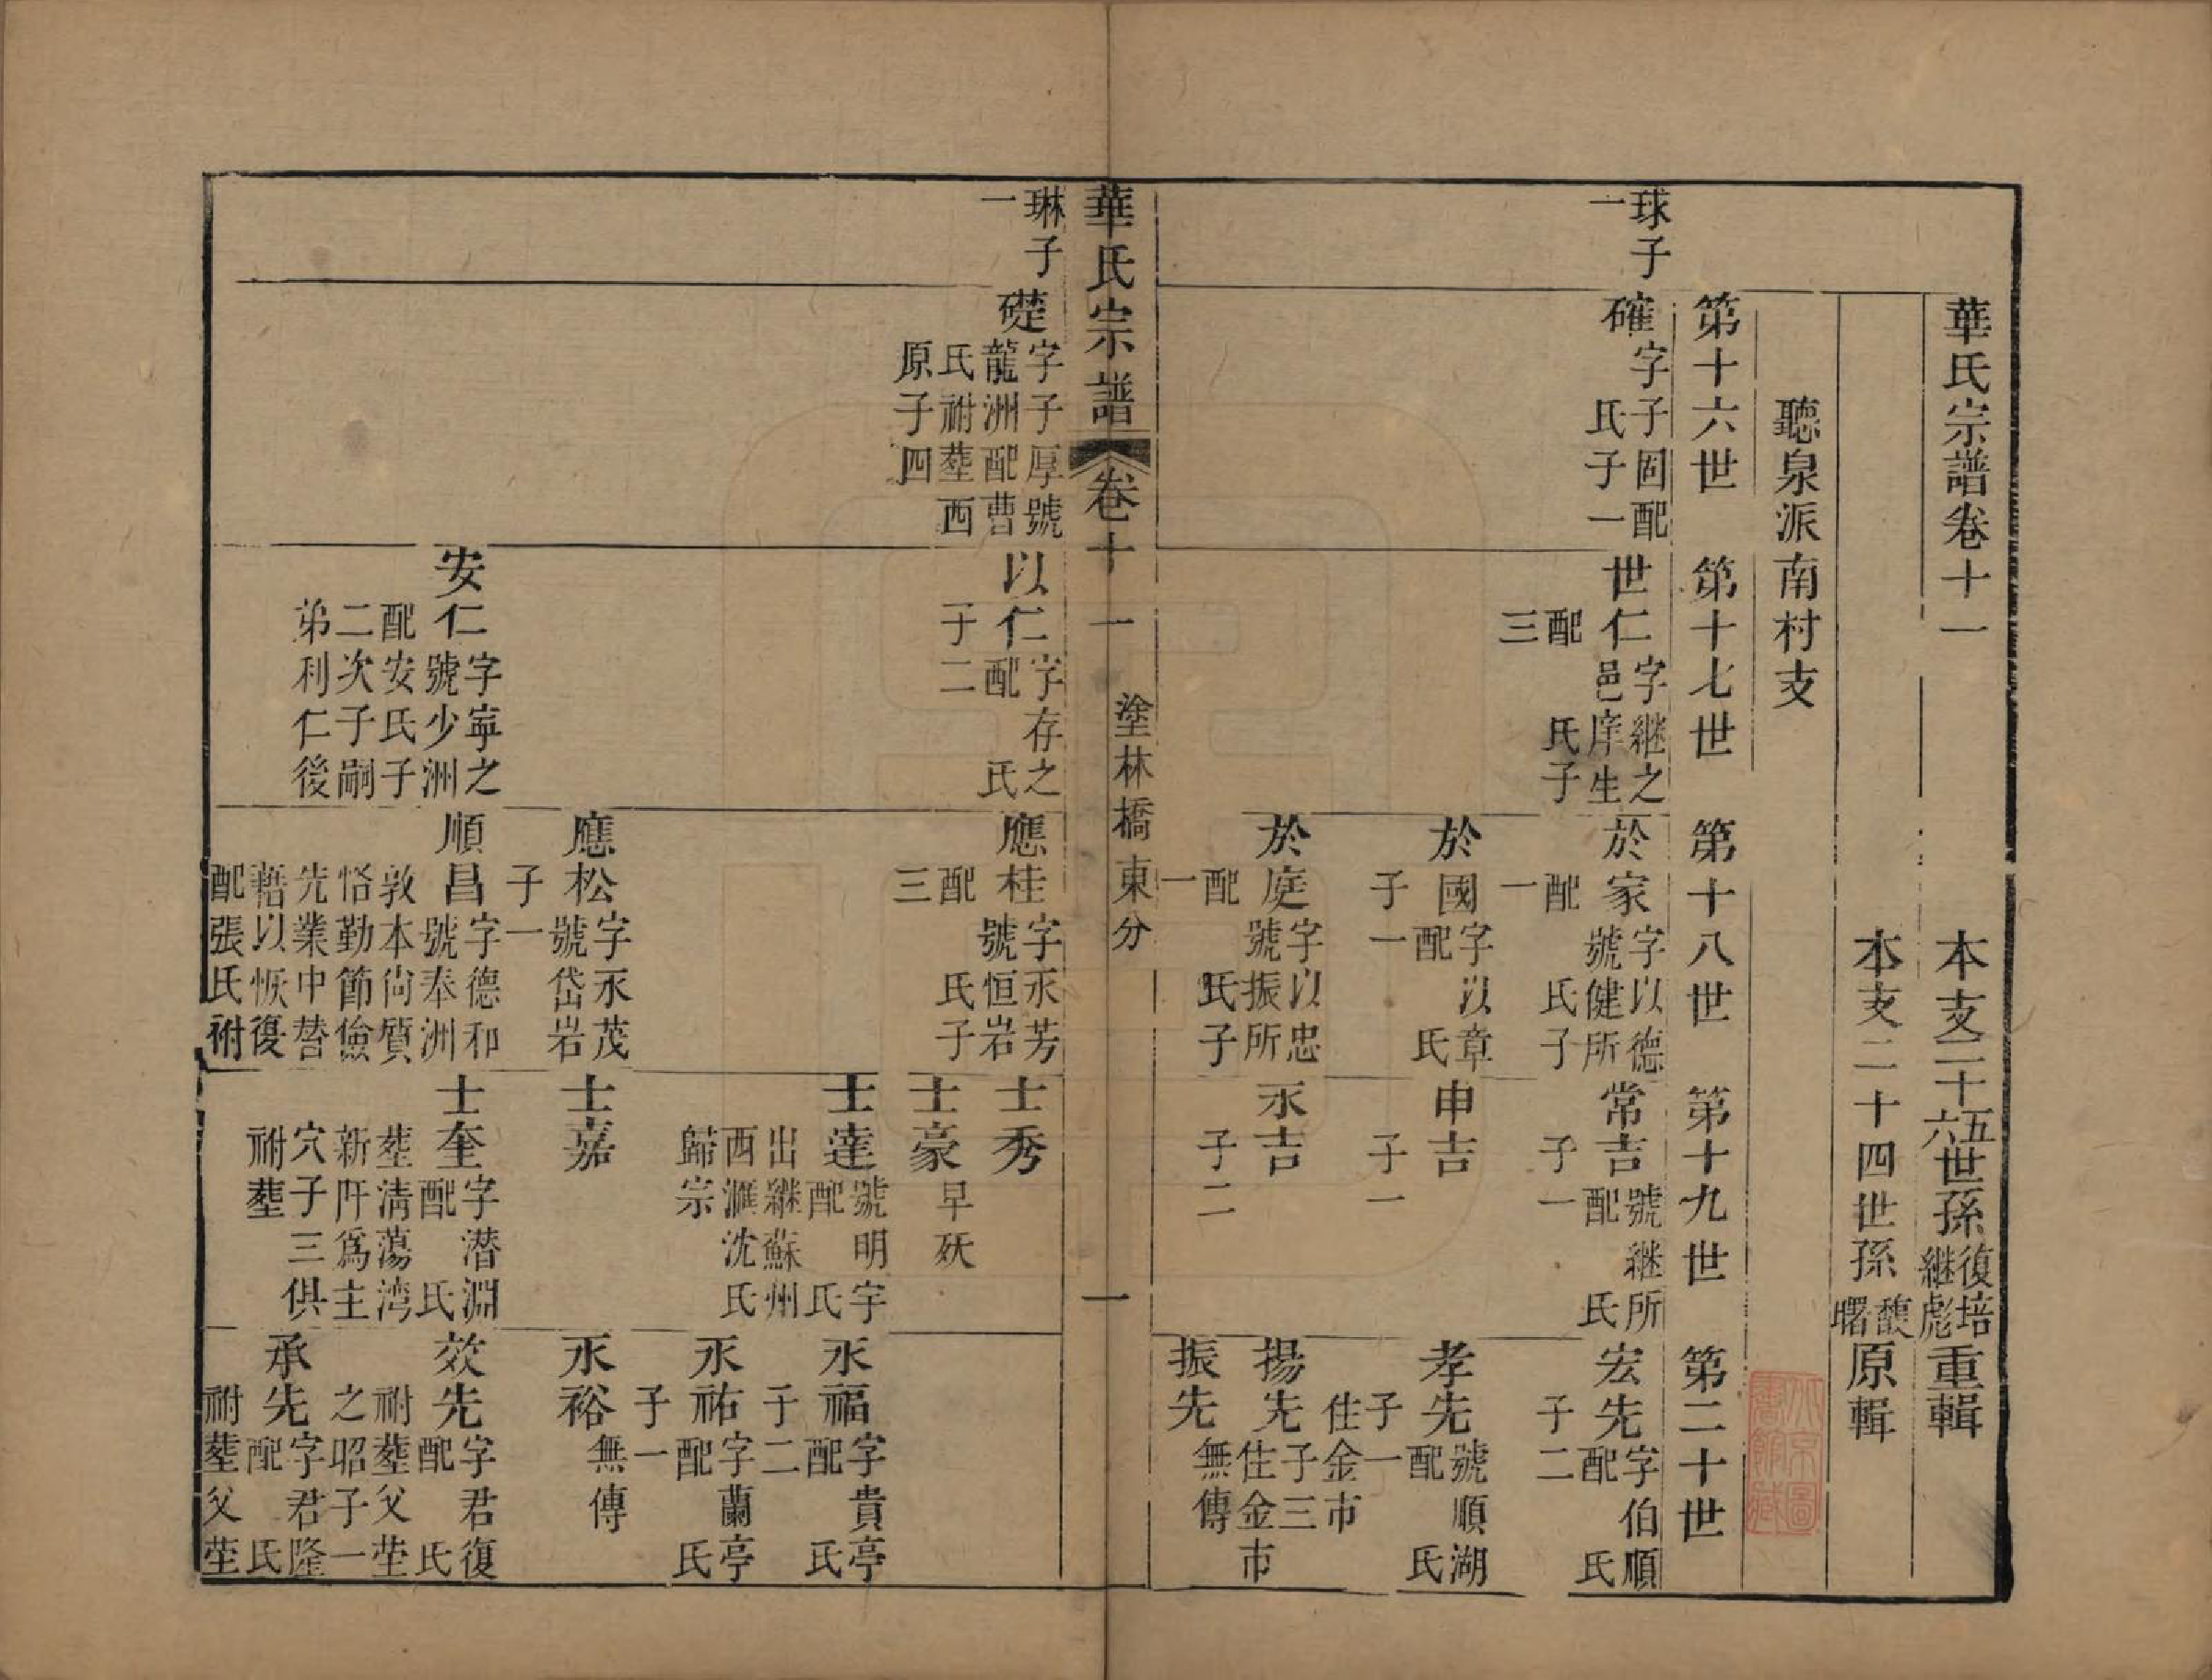 華氏宗譜卷十一
本支二十五六世孫復培繼彪重輯
本支二十四世孫馥曙原輯
聽泉派南村支
第十六世
第十七世
第十八世
第十九世
第二十世
球子一
確字子固配氏子一
世仁字繼之邑庠生配氏子三
於家字以德號健所配氏子一
常吉號繼所配氏子一
宏先字伯順配氏子二
於國字以章配氏子一
申吉子一
孝先號順湖配氏子一住金市
於庭字以忠號振所配氏子一
永吉子二
揚先子三住金市
振先無傳
華氏宗譜
卷十一
塗林橋東分
一
琳子一
礎字子厚號龍洲配曹氏祔塟西原子四
以仁字存之配氏子二
應桂字永芳號恒岩配氏子三
士秀
士豪早殀
士達號明宇配氏出繼蘇州西滙沈氏歸宗
永福字貴亭配氏子二
永祐字蘭亭配氏子一
應松字永茂號岱岩子一
士嘉
永裕無傳
安仁字寧之號少洲配安氏子二次子嗣弟利仁後
順昌字德和號奉洲敦本尙質恪勤節儉先業中替藉以恢復配張氏祔
士奎字潛淵配氏塟清蕩湾新阡爲主穴子三俱祔塟
效先字君復配氏祔塟父塋之昭子一
承先字君隆配氏祔塟父塋